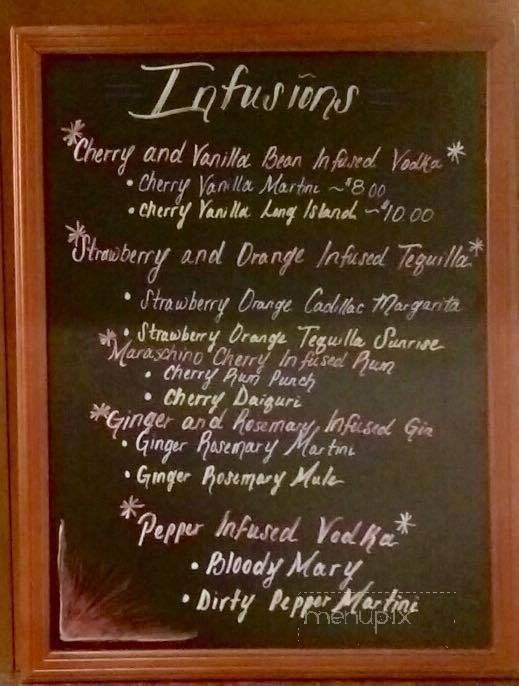 Infusions
*Cherry and Vanilla Bean Infused Vodka*
• Cherry Vanilla Martini ~ $8.00
• Cherry Vanilla Long Island ~ $10.00
*Strawberry and Orange Infused Tequilla*
• Strawberry Orange Cadillac Margarita
• Strawberry Orange Tequilla Sunrise
*Maraschino Cherry Infused Rum
• Cherry Rum Punch
• Cherry Daiquri
*Ginger and Rosemary Infused Gin
• Ginger Rosemary Martini
• Ginger Rosemary Mule
*Pepper Infused Vodka*
• Bloody Mary
• Dirty Pepper Martini
menupix